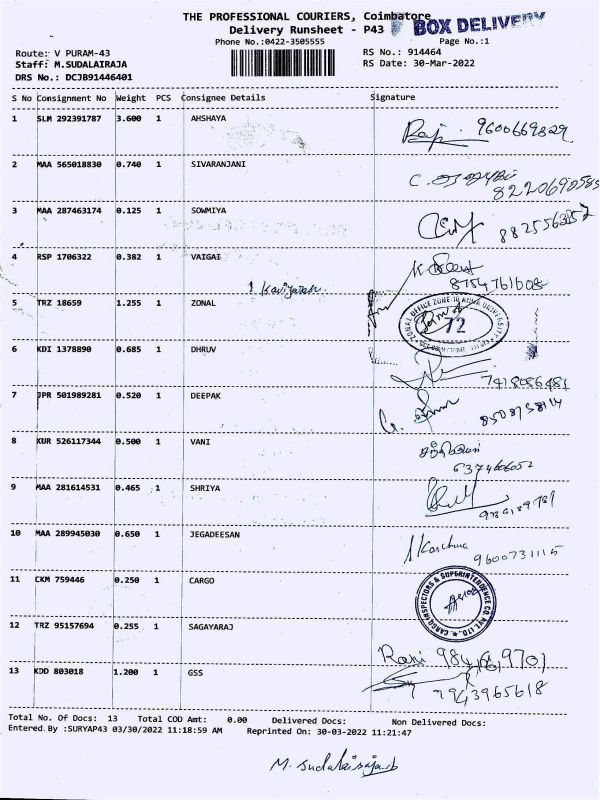 THE PROFESSIONAL COURIERS, Coimbatore
Delivery Runsheet - P43
BOX DELIVERY
Phone No.:0422-3505555
Page No.:1
Route: V PURAM-43
RS No.: 914464
Staff: M.SUDALAIRAJA
RS Date: 30-Mar-2022
DRS No.: DCJB91446401
S No Consignment No Weight PCS Consignee Details Signature
1 SLM 292391787 3.600 1 AHSHAYA
Raji 9600669829
2 MAA 565018830 0.740 1 SIVARANJANI
8220690585
3 MAA 287463174 0.125 1 SOWMIYA
4 RSP 1706322 0.382 1 VAIGAI
8754761008
5 TRZ 18659 1.255 1 ZONAL
72
6 KDI 1378890 0.685 1 DHRUV
7418086481
7 JPR 501989281 0.520 1 DEEPAK
8 KUR 526117344 0.500 1 VANI
9 MAA 281614531 0.465 1 SHRIYA
10 MAA 289945030 0.650 1 JEGADEESAN
9600731115
11 CKM 759446 0.250 1 CARGO
CARGO INSPECTORS & SUPERINTENDENCE CO. PVT. LTD.
12 TRZ 95157694 0.255 1 SAGAYARAJ
13 KDD 803018 1.200 1 GSS
Total No. Of Docs: 13 Total COD Amt: 0.00 Delivered Docs: Non Delivered Docs:
Entered By :SURYAP43 03/30/2022 11:18:59 AM Reprinted On: 30-03-2022 11:21:47